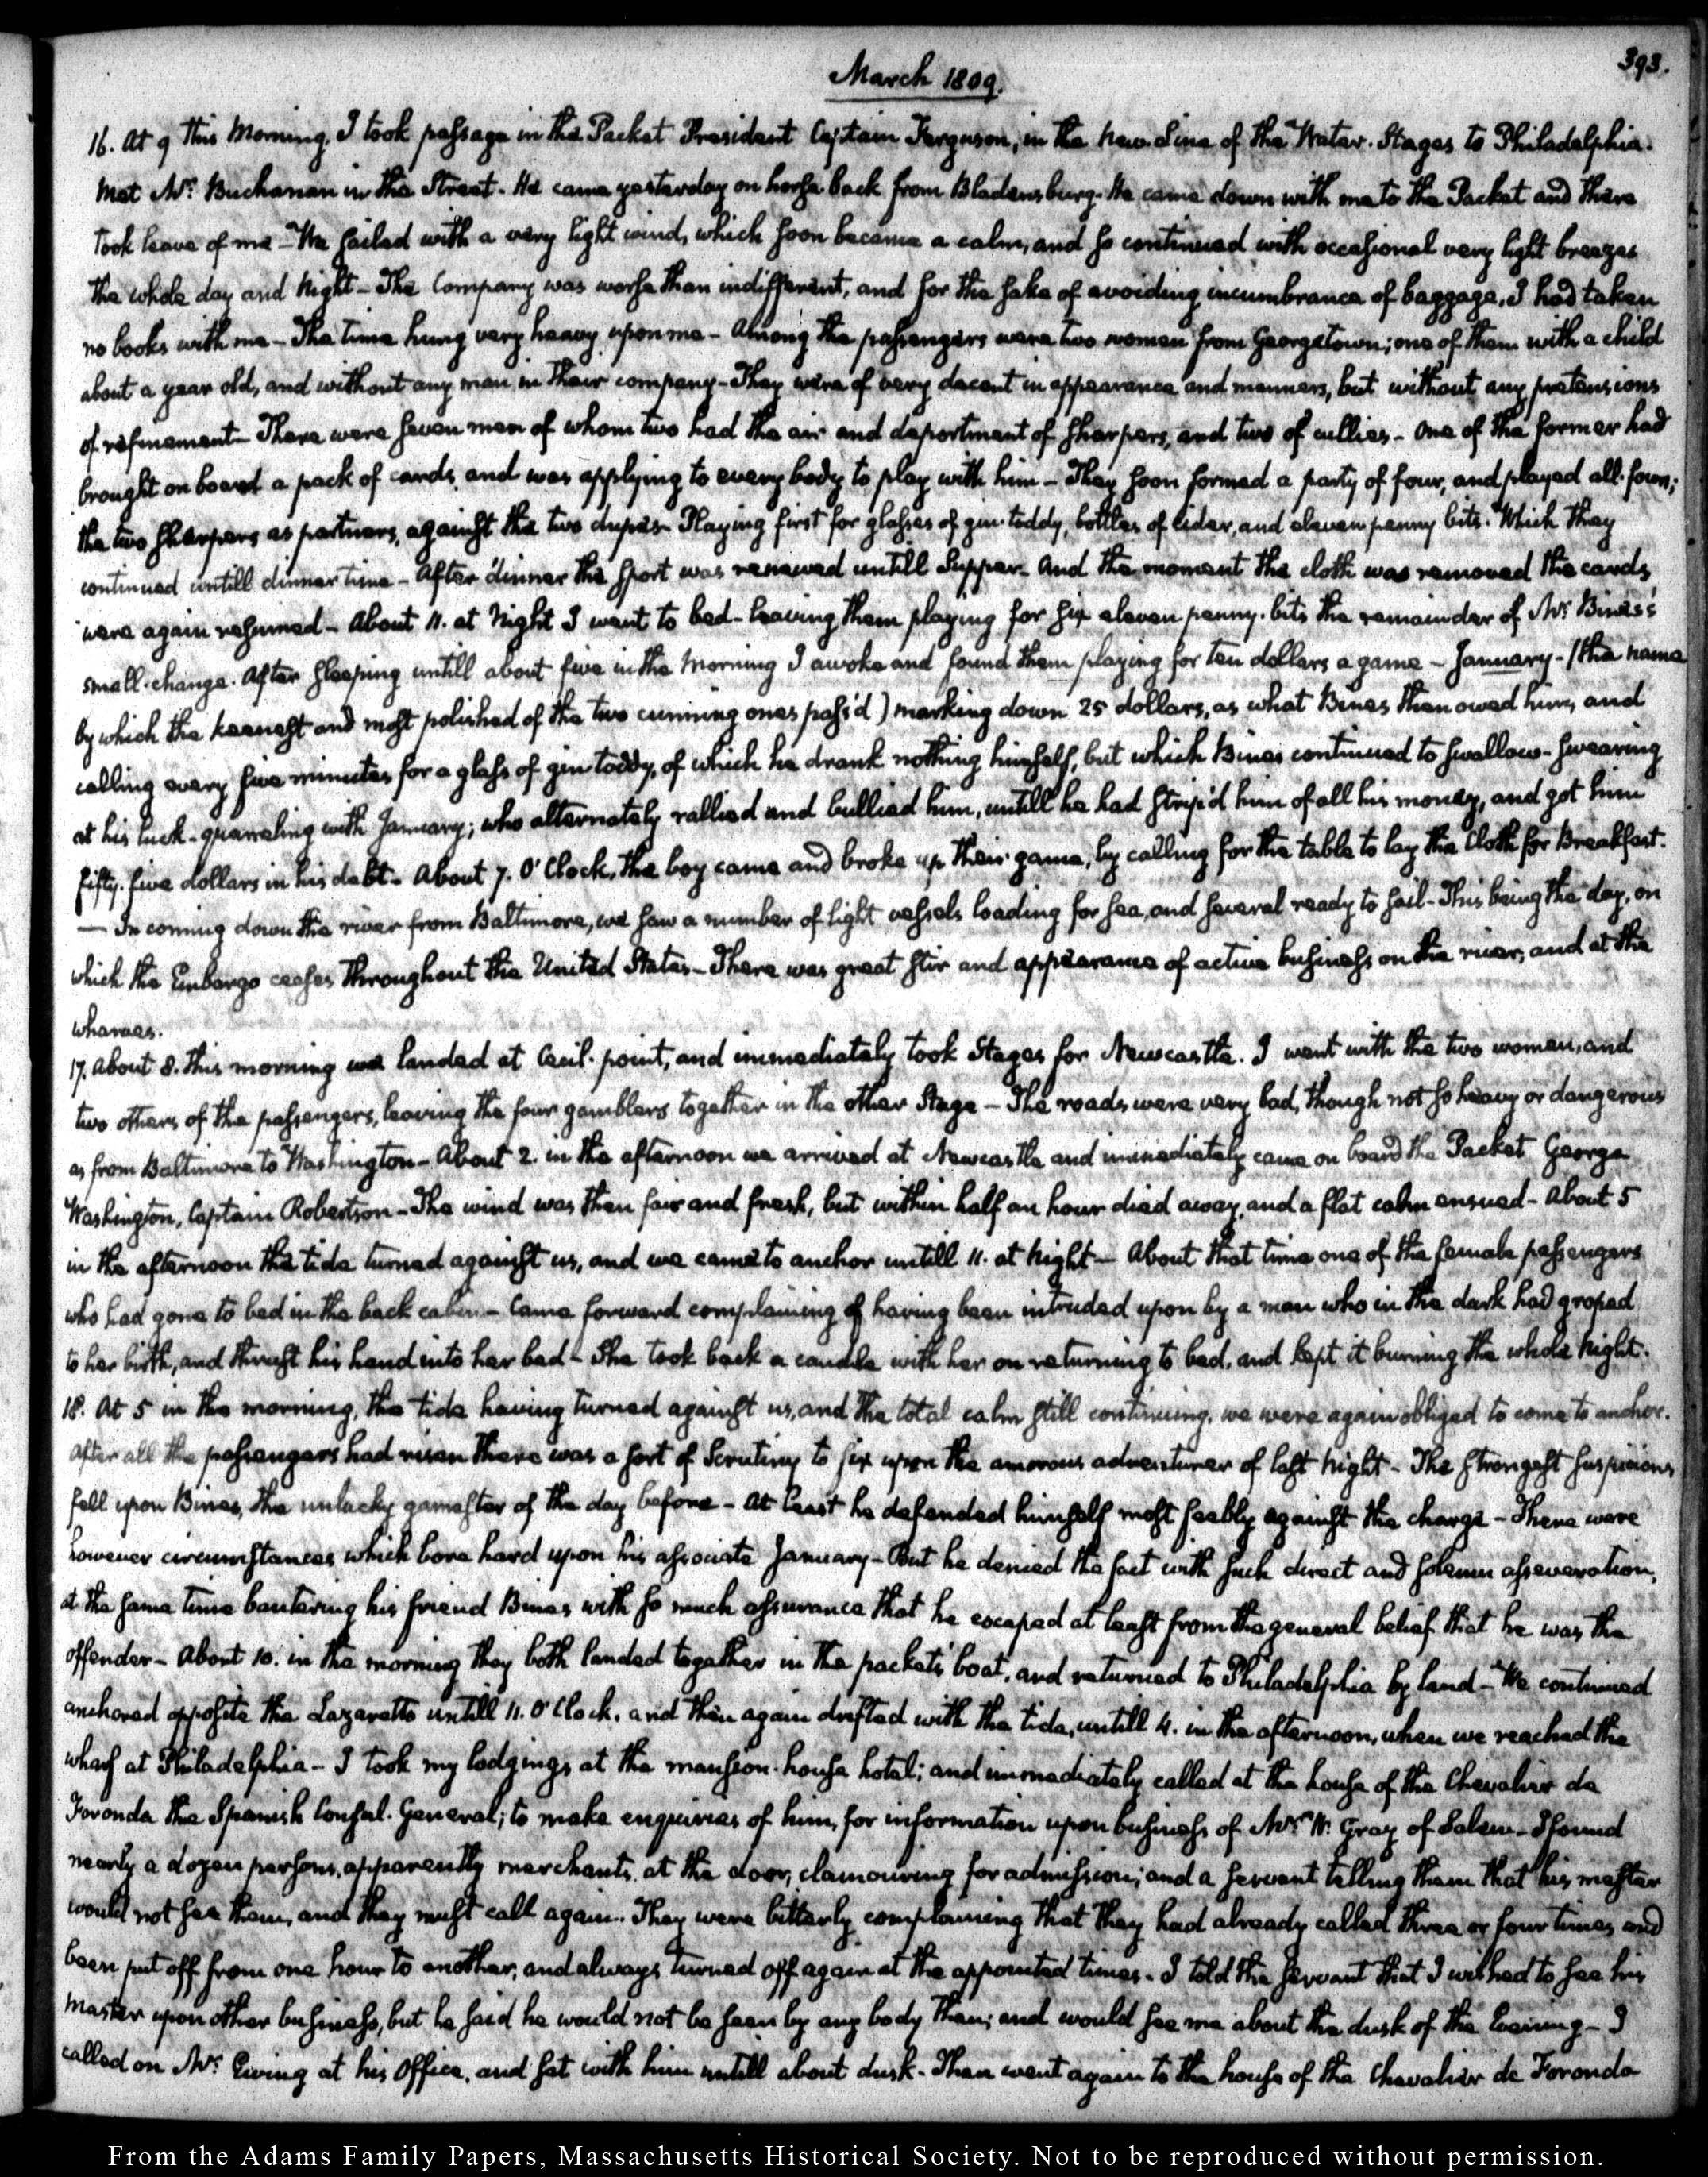 393.
March 1809.
16. At 9 this Morning, I took passage in the Packet President Captain Ferguson, in the new Line of the Water-Stages to Philadelphia.
Met Mr. Buchanan in the Street. He came yesterday on horse back from Bladensburg. He came down with me to the Packet and there
took leave of me – We sailed with a very light wind, which soon became a calm, and so continued with occasional very light breezes
the whole day and Night – The Company was worse than indifferent, and for the sake of avoiding incumbrance of baggage, I had taken
no books with me – The time hung very heavy upon me – Among the passengers were two women from Georgetown; one of them with a child
about a year old, and without any man in their company – They were of very decent in appearance and manners, but without any pretensions
of refinement – There were seven men of whom two had the air and deportment of sharpers, and two of cullies – One of the former had
brought on board a pack of cards, and was applying to every body to play with him – They soon formed a party of four, and played all-fours;
the two sharpers as partners, against the two dupes – Playing first for glasses of gin-toddy, bottles of Cider, and eleven penny bits. Which they
continued untill dinner time – After dinner the sport was renewed untill Supper – And the moment the cloth was removed the cards
were again resumed – About 11. at Night I went to bed – leaving them playing for six eleven penny-bits the remainder of Mr. Bines's
small-change. After sleeping untill about five in the Morning I awoke and found them playing for ten dollars a game – January – (the name
by which the keenest and most polished of the two cunning ones pass'd) marking down 25 dollars, as what Bines then owed him, and
calling every five minutes for a glass of gin toddy, of which he drank nothing himself, but which Bines continued to swallow – swearing
at his luck – quarreling with January; who alternately rallied and bullied him, untill he had strip'd him of all his money, and got him
fifty-five dollars in his debt – About 7. O'Clock, the boy came and broke up their game, by calling for the table to lay the Cloth for Breakfast.
— In coming down the river from Baltimore, we saw a number of light vessels loading for sea, and several ready to sail – This being the day, on
which the Embargo ceases throughout the United States – There was great stir and appearance of active business on the river, and at the
wharves.
17. About 8. this morning we landed at Cecil-point, and immediately took Stages for Newcastle. I went with the two women, and
two others of the passengers, leaving the four gamblers together in the other Stage – The roads were very bad, though not so heavy or dangerous
as from Baltimore to Washington – About 2. in the afternoon we arrived at Newcastle and immediately came on board the Packet George
Washington, Captain Robertson – The wind was then fair and fresh, but within half an hour died away, and a flat calm ensued – About 5
in the afternoon the tide turned against us, and we came to anchor untill 11. at Night — About that time one of the female passengers
who had gone to bed in the back cabin – Came forward complaining of having been intruded upon by a man who in the dark had groped
to her birth, and thrust his hand into her bed – She took back a candle with her on returning to bed, and kept it burning the whole Night.
18. At 5 in the morning, the tide having turned against us, and the total calm still continuing, we were again obliged to come to anchor.
After all the passengers had risen there was a sort of Scrutiny to fix upon the amorous adventurer of last Night – The strongest suspicions
fell upon Bines, the unlucky gamester of the day before – At least he defended himself most feebly against the charge – There were
however circumstances which bore hard upon his associate January – But he denied the fact with such direct and solemn asseveration,
at the same time bantering his friend Bines with so much assurance that he escaped at least from the general belief that he was the
offender – About 10. in the morning they both landed together in the packet's boat, and returned to Philadelphia by land – We continued
anchored opposite the Lazaretto untill 11. O'Clock, and then again drifted with the tide, untill 4. in the afternoon, when we reached the
wharf at Philadelphia – I took my lodgings at the mansion-house hotel; and immediately called at the house of the Chevalier de
Foronda the Spanish Consul-General; to make enquiries of him, for information upon business of Mr. W. Gray of Salem – I found
nearly a dozen persons, apparently merchants, at the door, clamouring for admission; and a servant telling them that his master
would not see them, and they must call again. They were bitterly complaining that they had already called three or four times and
been put off from one hour to another, and always turned off again at the appointed times – I told the servant that I wished to see his
Master upon other business, but he said he would not be seen by any body then; and would see me about the dusk of the Evening – I
called on Mr. Ewing at his Office, and sat with him untill about dusk – Then went again to the house of the Chevalier de Foronda
From the Adams Family Papers, Massachusetts Historical Society. Not to be reproduced without permission.